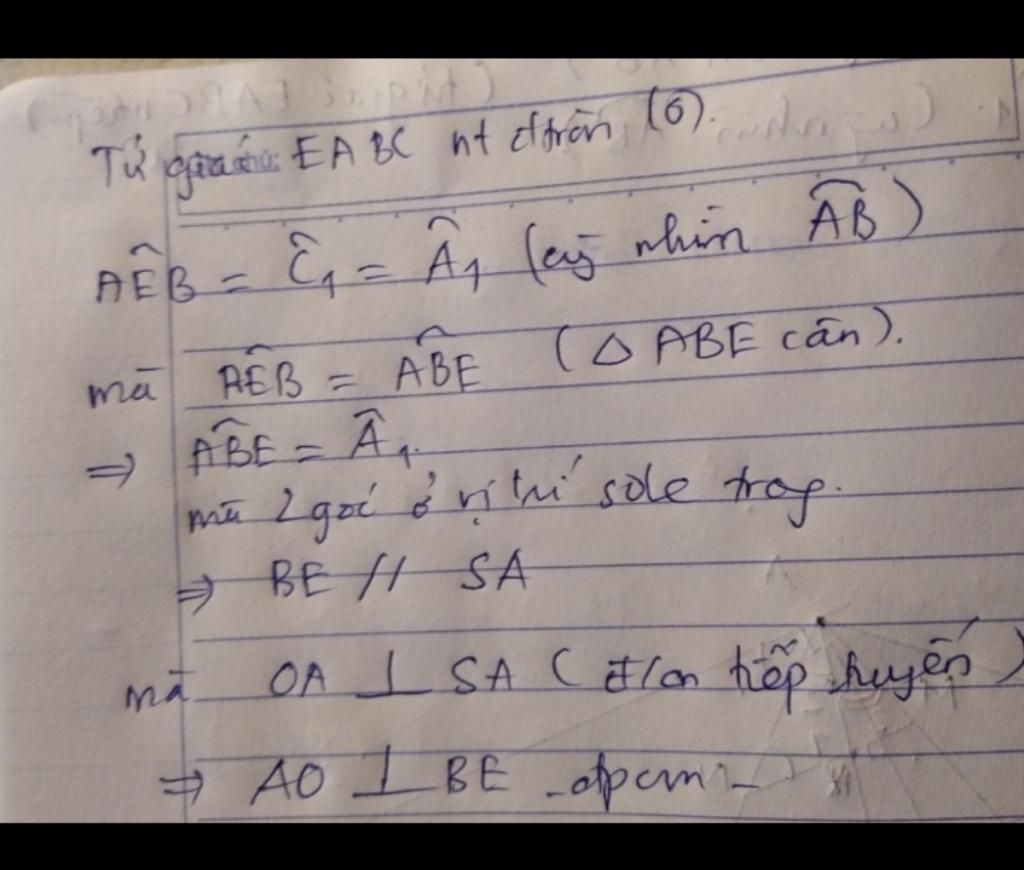 Tứ giác EABC nt đtròn (O).
AÊB = Ĉ₁ = Â₁ (cg nhìn A͡B)
mà AÊB = AB̂E (△ ABE cân).
⇒ AB̂E = Â₁.
mà 2 góc ở vị trí sole trog.
⇒ BE // SA
mà OA ⊥ SA (t/c tiếp tuyến)
⇒ AO ⊥ BE - đpcm -